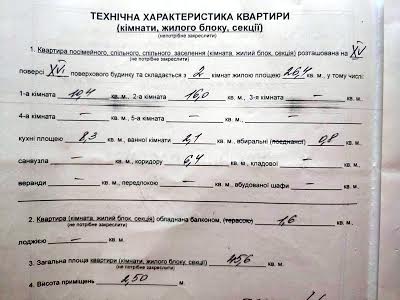 ТЕХНІЧНА ХАРАКТЕРИСТИКА КВАРТИРИ
(кімнати, жилого блоку, секції)
(непотрібне закреслити)
1. Квартира посімейного, спільного, спільного, заселення (кімната, жилий блок, секція) розташована на XV
(не потрібне закреслити)
поверсі XVI поверхового будинку та складається з 2 кімнат жилою площею 26,4 кв. м., у тому числі:
1-а кімната 10,4 кв. м., 2-а кімната 16,0 кв. м., 3-я кімната — кв. м.
4-а кімната — кв. м., 5-а кімната — кв. м.
кухні площею 8,3 кв. м., ванної кімнати 2,1 кв. м., вбиральні (поєднаної) 0,8 кв. м.
санвузла — кв. м., коридору 6,4 кв. м., кладової — кв. м.
веранди — кв. м., передпокою — кв. м., вбудованої шафи — кв. м.
2. Квартира (кімната, жилий блок, секція) обладнана балконом, (терасою) 1,6 кв. м.
(не потрібне закреслити)
лоджією — кв. м.
3. Загальна площа квартири (кімнати, жилого блоку, секції) 45,6 кв. м.
(не потрібне закреслити)
4. Висота приміщень 2,50 м.